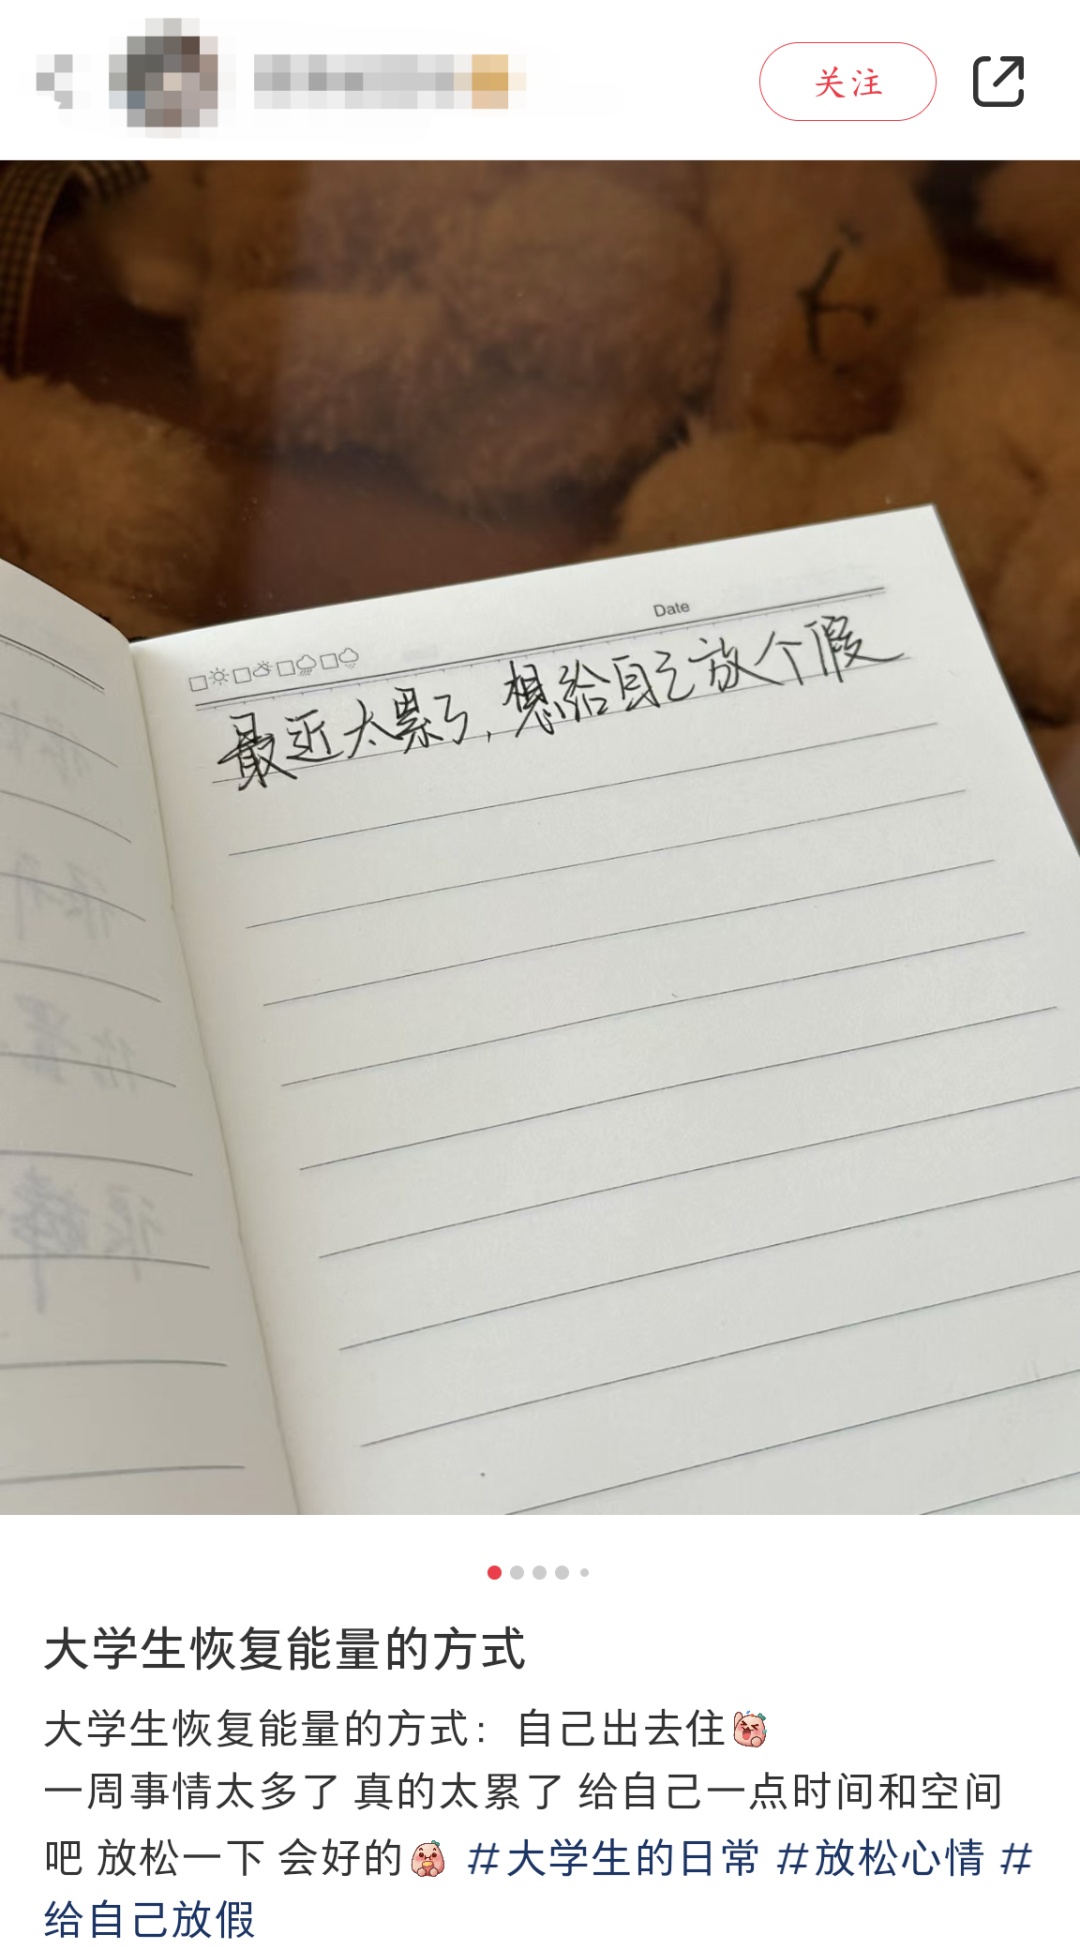 关注
Date
最近太累了,想给自己放个假
大学生恢复能量的方式
大学生恢复能量的方式：自己出去住
一周事情太多了 真的太累了 给自己一点时间和空间
吧 放松一下 会好的 #大学生的日常 #放松心情 #
给自己放假